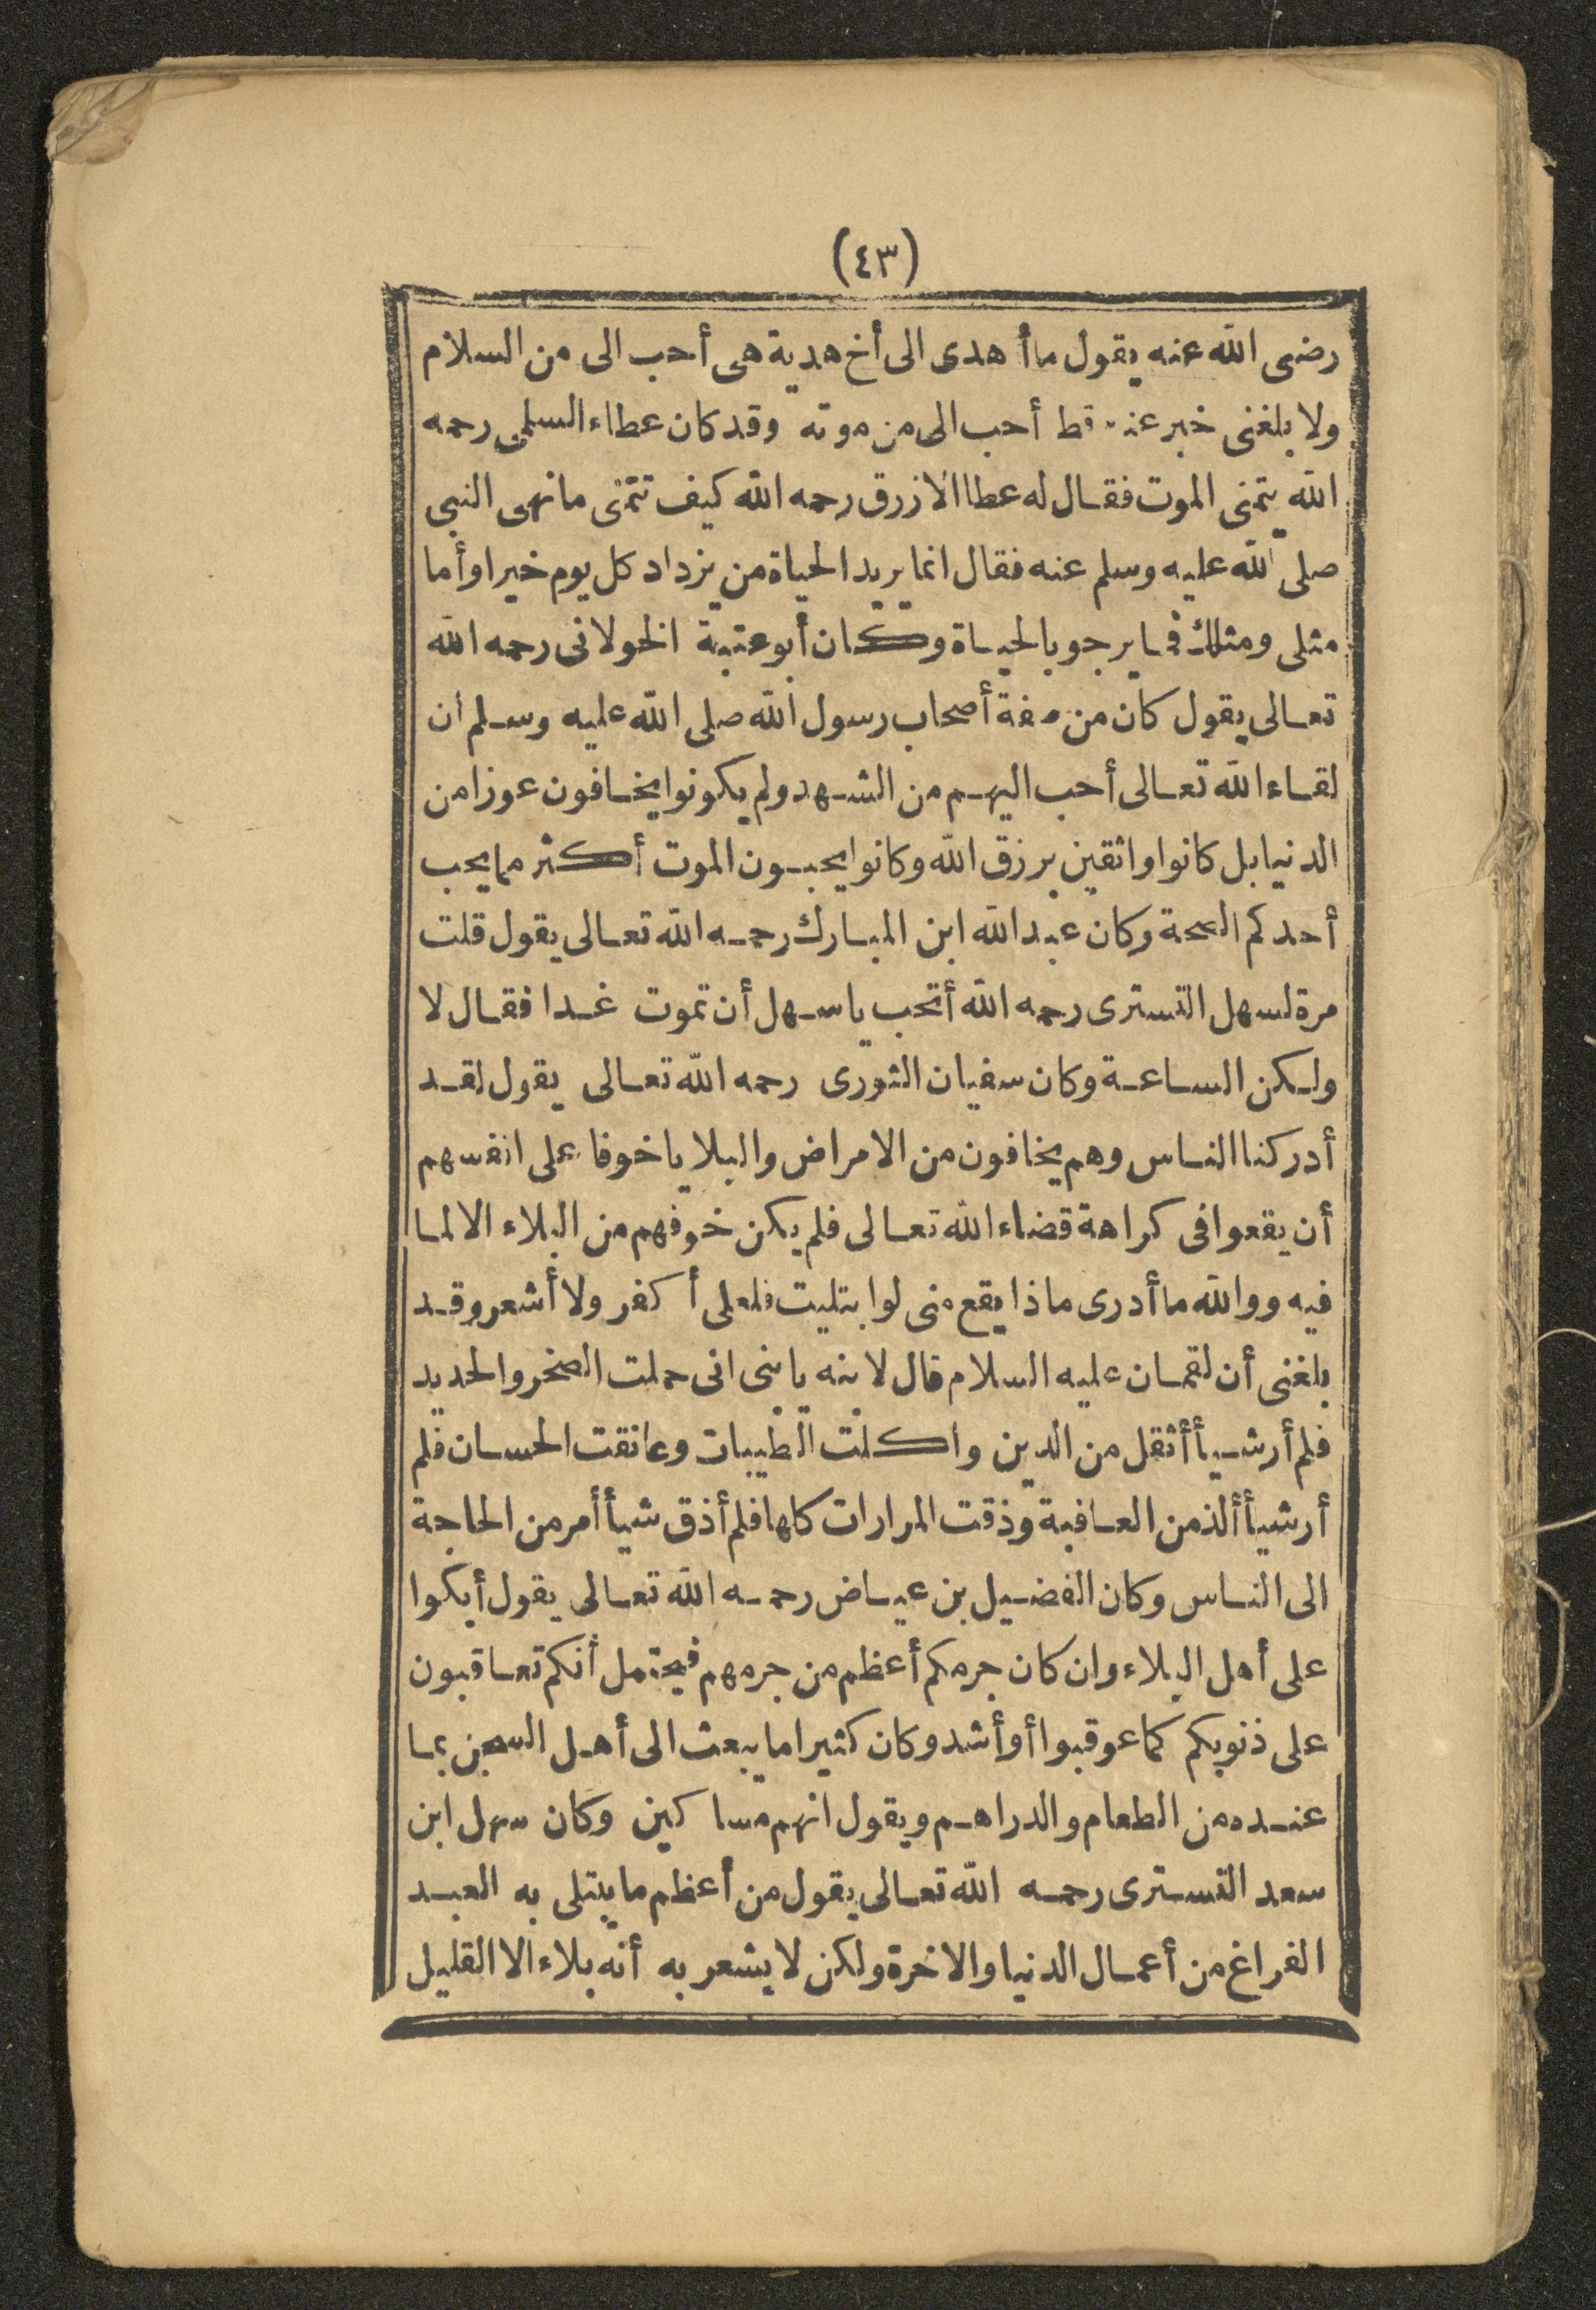 (٤٣)
رضى الله عنه يقول ما أهدى الى أخ هدية هى أحب الى من السلام
ولا بلغنى خبر عنه قط أحب الى من موته وقد كان عطاء السلمى رحمه
الله يتمنى الموت فقال له عطا الازرق رحمه الله كيف تتمنى ما نهى النبى
صلى الله عليه وسلم عنه فقال انما يريد الحياة من يزداد كل يوم خيرا وأما
مثلى ومثلك فما يرجو بالحياة وكان أبو عتبة الخولانى رحمه الله
تعالى يقول كان من صفة أصحاب رسول الله صلى الله عليه وسلم ان
لقاء الله تعالى أحب اليهم من الشهد ولم يكونوا يخافون عوزا من
الدنيا بل كانوا واثقين برزق الله وكانوا يحبون الموت أكثر مما يحب
أحدكم الصحة وكان عبد الله ابن المبارك رحمه الله تعالى يقول قلت
مرة لسهل التسترى رحمه الله أتحب يا سهل أن تموت غدا فقال لا
ولكن الساعة وكان سفيان الثورى رحمه الله تعالى يقول لقد
أدركنا الناس وهم يخافون من الامراض والبلايا خوفا على انفسهم
أن يقعوا فى كراهة قضاء الله تعالى فلم يكن خوفهم من البلاء الا لما
فيه ووالله ما أدرى ماذا يقع منى لو ابتليت فلعلى أكفر ولا أشعر وقد
بلغنى أن لقمان عليه السلام قال لابنه يا بنى انى حملت الصخر والحديد
فلم أر شيأ أثقل من الدين واكلت الطيبات وعانقت الحسان فلم
أر شيأ ألذ من العافية وذقت المرارات كلها فلم أذق شيأ أمر من الحاجة
الى الناس وكان الفضيل بن عياض رحمه الله تعالى يقول أبكوا
على أهل البلاء وان كان جرمكم أعظم من جرمهم فيحتمل أنكم تعاقبون
على ذنوبكم كما عوقبوا أو أشد وكان كثيرا ما يبعث الى أهل السجن بما
عنده من الطعام والدراهم ويقول انهم مساكين وكان سهل ابن
سعد التسترى رحمه الله تعالى يقول من أعظم ما يبتلى به العبد
الفراغ من أعمال الدنيا والاخرة ولكن لا يشعر به أنه بلاء الا القليل